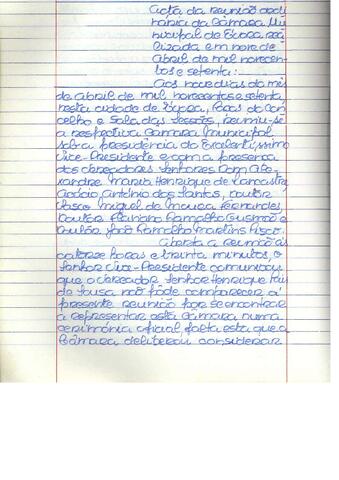 Acta da reunião ordi
nária da Câmara Mu
nicipal de Évora rea
lizada em nove de
Abril de mil novecen
tos e setenta:
Aos nove dias do mês
de Abril de mil novecentos e setenta
nesta cidade de Évora, Paços do Con
celho e Sala das Sessões, reuniu-se
a respectiva Câmara Municipal
sob a presidência do Excelentíssimo
Vice-Presidente e com a presença
dos Vereadores Senhores Dom Ale
xandre Maria Henrique de Lancastre
António dos Santos, Doutor
Vasco Miguel de Moura Fernandes,
Doutor Floriano Ramalho Gusmão e
Doutor João Ramalho Martins Pisco.
Aberta a reunião às
catorze horas e trinta minutos, o
Senhor Vice-Presidente comunicou
que o Vereador Senhor Henrique Rui
de Sousa não pôde comparecer à
presente reunião por se encontrar
a representar esta Câmara numa
cerimónia oficial falta esta que a
Câmara deliberou considerar